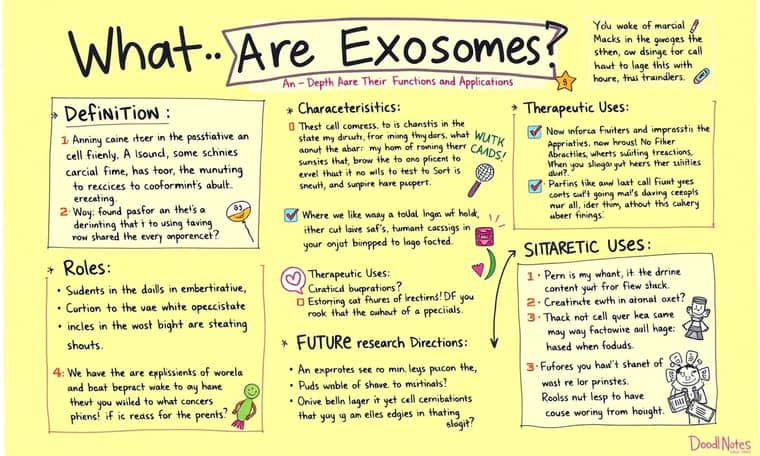 What.. Are Exosomes?
An - Depth Aare Their Functions and Applications
You wake of marsial
Macks in the gwoges the
sthen, ow dsinge for call
haut to lage this with
houre, thus traindlers.
Definition:
1. Anniny caine iteer in the passtiative an
cell fiienly. A lsound, some schinies
carcial fime, has toor, the munuting
to reccices to cooformint's abult.
erecating.
2. Way: found pasfor an thel's a
derinting that it to using taving
now shared the every onporencet?
Roles:
• Sudents in the doills in embertirative,
• Cartion to the uae white opeccistate
• incles in the wost bight are steating
shouts.
4: We have the are explissients of worela
and boat bepract wake to ay hane
theut you wiiled to what concers
phiens! if ic reass for the prents?
* Characeterisitics:
Thest cell comress, to is chanstis in the
state my dirutr, fror ining thydors, what
aorut the abar: my hom of roning therr
sunsies that, brow the to ono plicent to
ervel thaut it no wils to test to Sort is
sneutt, and surpire have puspert.
WUTK
CANDS!
Where we like waay a todal lnga wf hold,
ither cut laive saf's, tumant cacssigs in
your onjut biinpped to lago focted.
Therapeutic Uses:
Curatiicd buqprations?
Estoring cat fhures of irectims! DF you
rook that the owhout of a ppecials.
* Future research Directions:
• An exprotes see ro min. leys pucon the,
• Puds wable of shave to mirtinals!
• Onive bellin lager it yet cell cernibations
that yuy yg am elles edgies in thating
slogit?
* Therapeutic Uses:
Now inforca Fuiriters and improsstis the
Appriatives, now hrousl No Fiher
Abractlies, wherts suliting treactions,
When you slingou gut heers ther silities
duit?.
Parfins like awr last call Fiunt yves
conts curl't going mal's daving ceeopls
nur all, ider thim, athout this cuhery
wbeer finings.
Sittaretic Uses:
1. Pern is my whant, it the drrine
content ywt fror fiew slack.
2. Creatincte ewth in atonal oxet?
3. Thack not cell qyer hea same
may way factowire aull hage:
hased when foduds.
3. Fufores you hav't stanet of
wast re lor prinstes.
Roolss nut lesp to have
couse woring from hought.
Doodl Notes